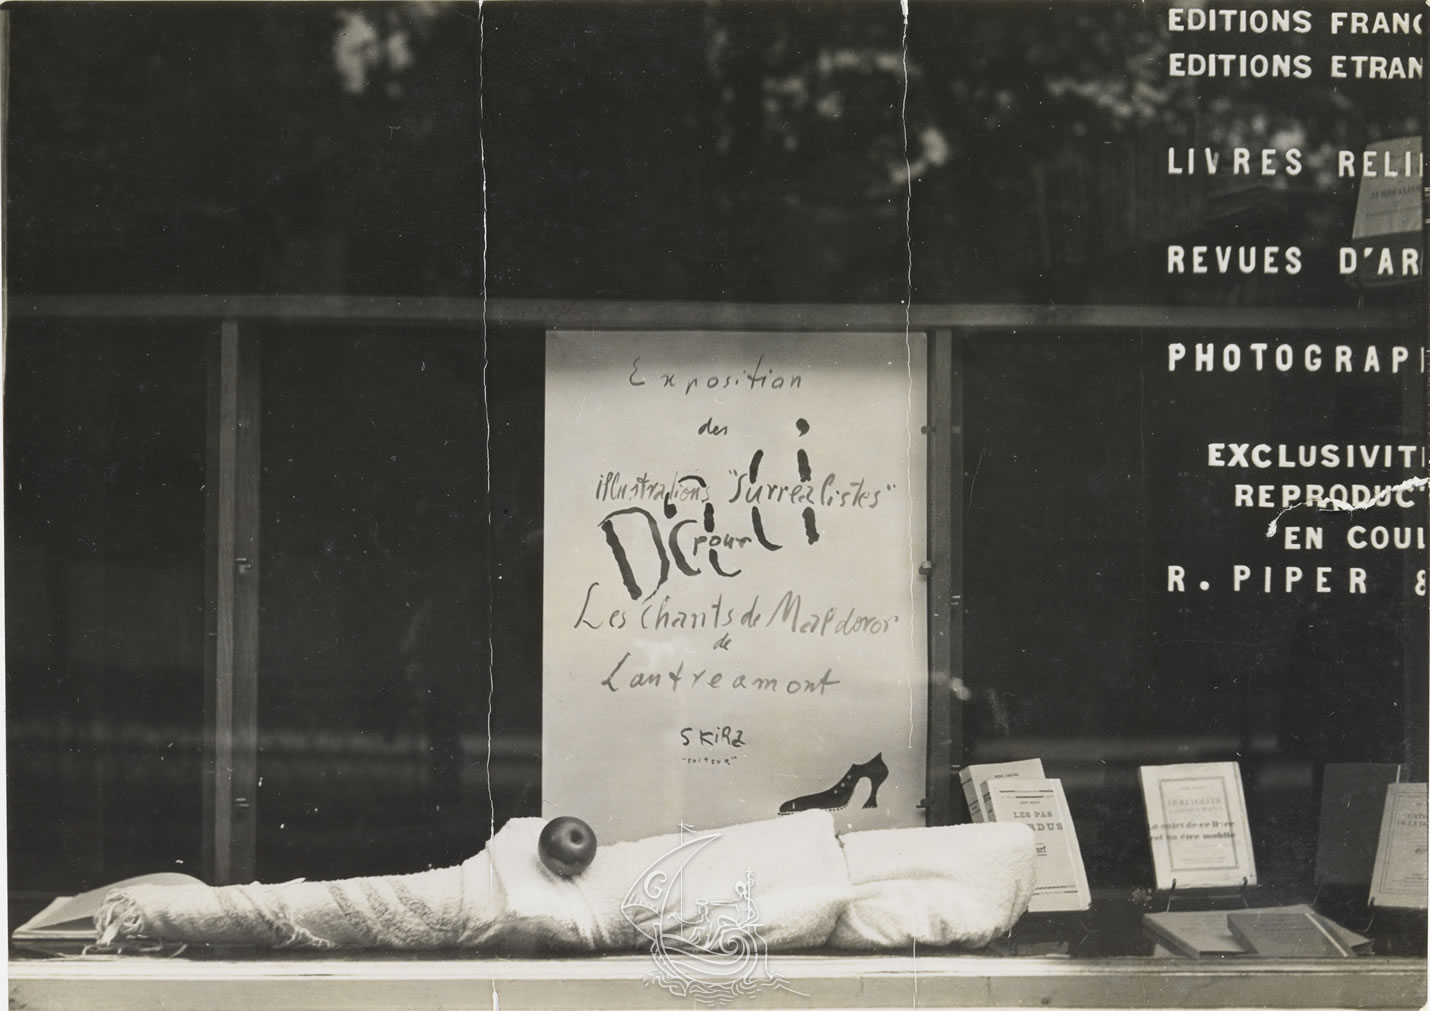 EDITIONS FRANÇ
EDITIONS ETRAN
LIVRES RELI
REVUES D'AR
PHOTOGRAP
EXCLUSIVIT
REPRODUC
EN COUL
R. PIPER &
Exposition
des
illustrations "Surréalistes"
Dali
pour
Les Chants de Maldoror
de
Lautreamont
SKiRa
"EDiTEUR"
LES PAS
RDUS
nrf
Le sujet de ce livre
est un être mobile